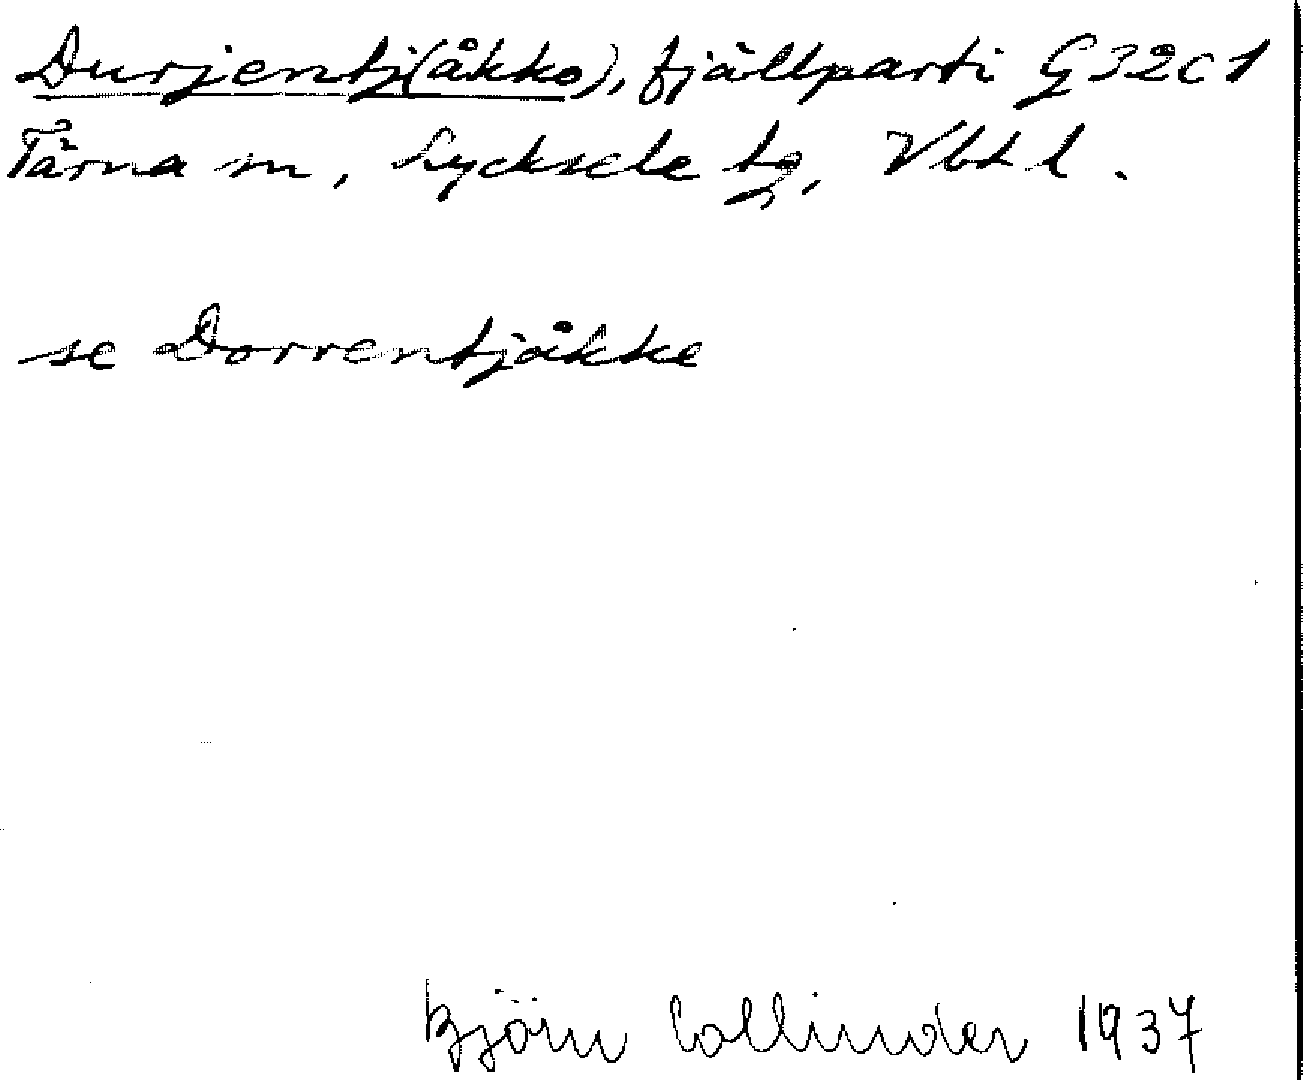 Durjentj(åkko), fjällparti G32C1
Tärna sn, Lycksele tg, Vbt l.
se Dorrentjåkke
Björn Collinder 1937